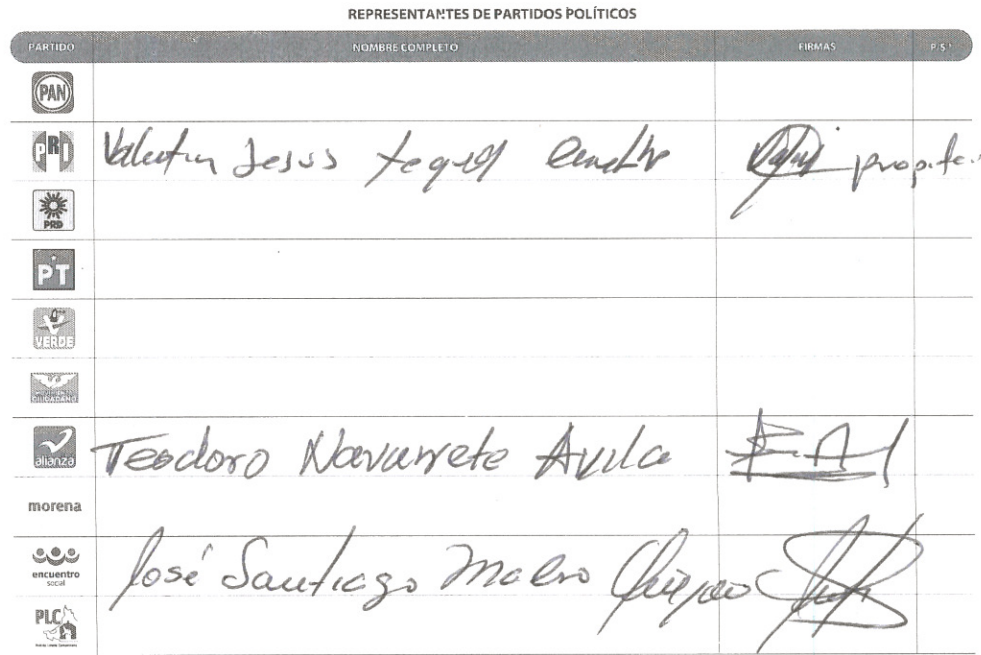 REPRESENTANTES DE PARTIDOS POLÍTICOS
PARTIDO NOMBRE COMPLETO FIRMAS P.S.*
PAN
PRI Valentin Jesus
PRD
PT
VERDE
CIUDADANO
alianza Teodoro Navarrete Avila
morena
encuentro social José Santiago
PLC